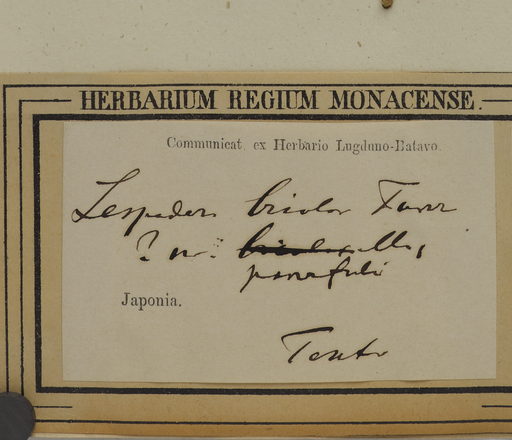 HERBARIUM REGIUM MONACENSE.
Communicat ex Herbario Lugduno-Batavo.
Lespedeza bicolor Turcz
? var.
parvifoli
Japonia.